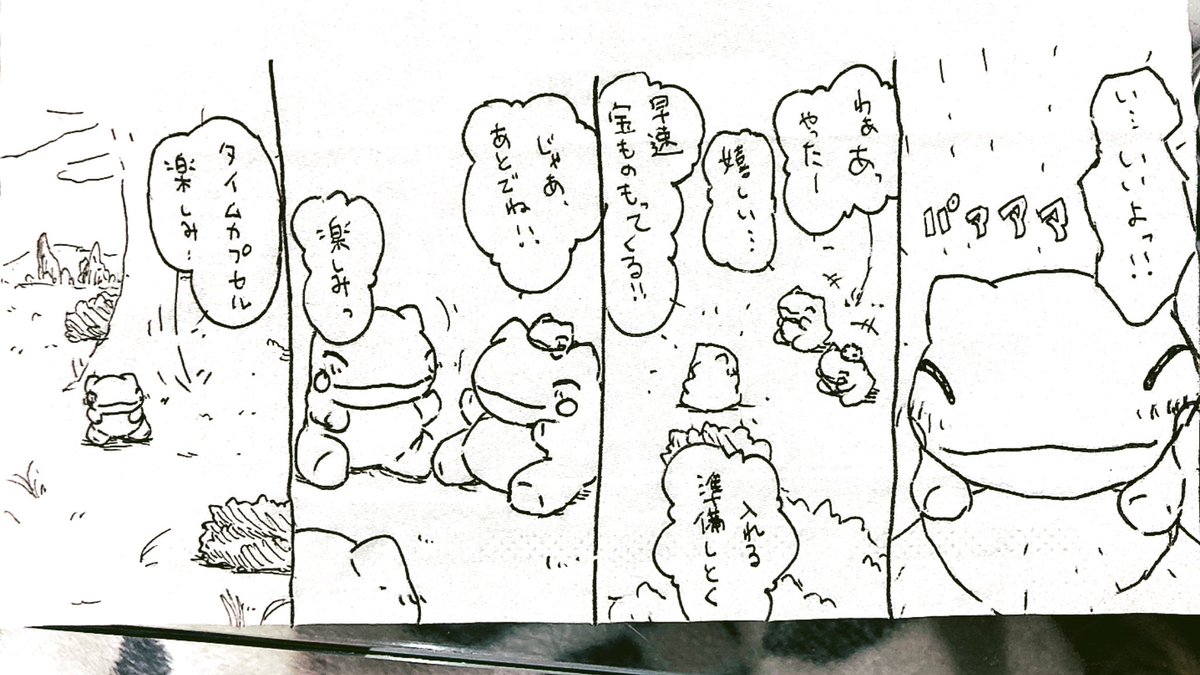 い…
いいよっ…!!
パァァァ
わぁあっ
やったー
嬉しい…
早速
宝ものもってくる!!
入れる
準備しとく
じゃあ、
あとでねい!!
楽しみっ
タイムカプセル
楽しみ…